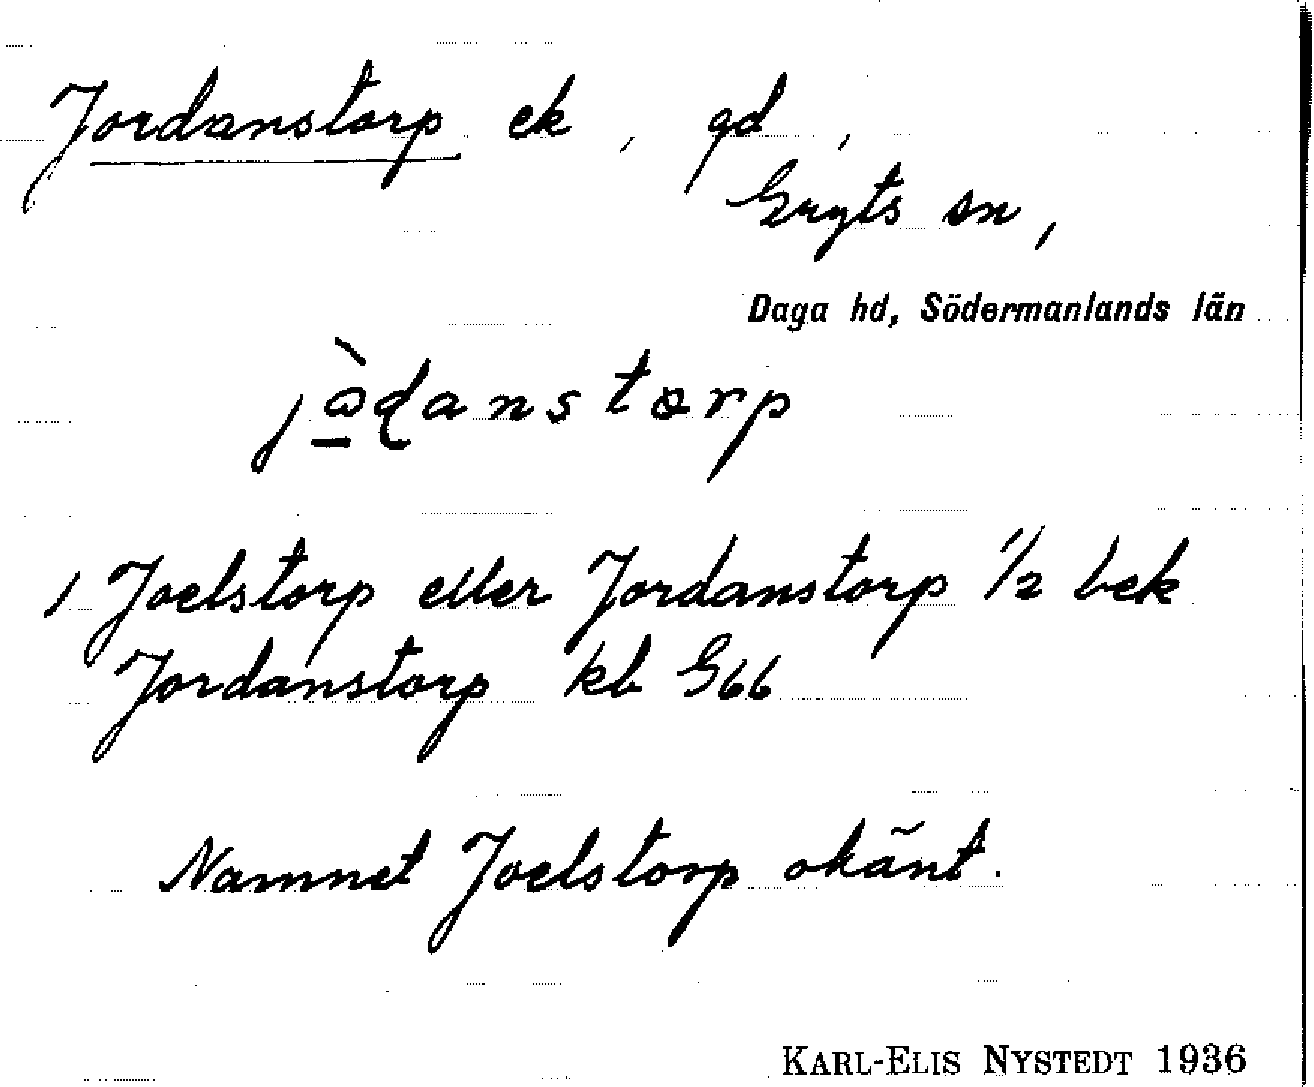 Jordanstorp ek, gd,
Gryts sn,
Daga hd, Södermanlands län
Joelstorp eller Jordanstorp 1/2 bek
Jordanstorp kb G66
Namnet Joelstorp okänt.
KARL-ELIS NYSTEDT 1936